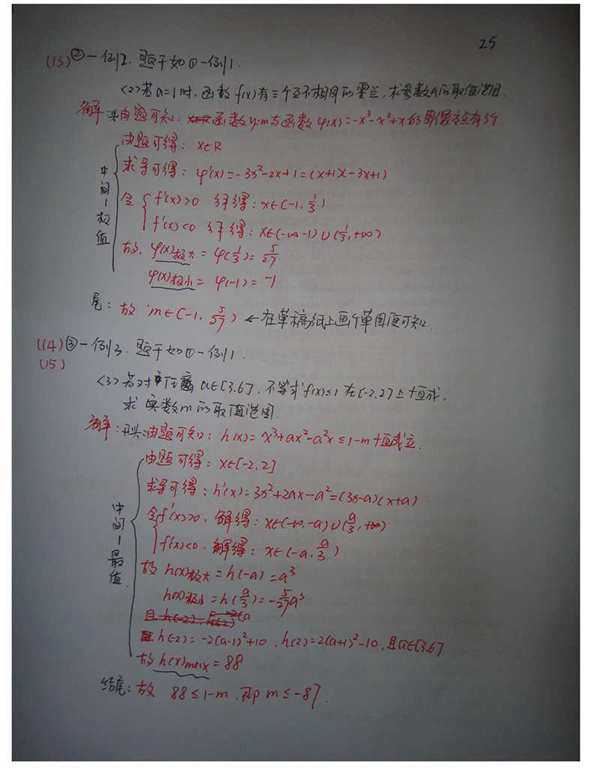 25
(13) ②一例2. 题干如①一例1.
<2>若a=1时, 函数f(x)有三个互不相同的零点, 求实数m的取值范围.
解: 头: 由题可知: 函数y=m与函数φ(x)=-x³-x²+x的图像有3个
由题可得: x∈R
求导可得: φ'(x)=-3x²-2x+1=(x+1)(-3x+1)
令 f'(x)>0 解得: x∈(-1, 1/3)
f'(x)<0 解得: x∈(-∞,-1)∪(1/3,+∞)
故. φ(x)极大=φ(1/3)=5/27
φ(x)极小=φ(-1)=-1
中间一极值
尾: 故 m∈(-1, 5/27) ←在草稿纸上画个草图便可知.
(14) ③一例3. 题干如①一例1.
(15)
<3>若对任意a∈[3.6], 不等式f(x)≤1在[-2.2]上恒成.
求实数m的取值范围
解: 头: 由题可知: h(x)=x³+ax²-a²x≤1-m恒成立.
由题可得: x∈[-2,2]
求导可得: h'(x)=3x²+2ax-a²=(3x-a)(x+a)
令f'(x)>0. 解得: x∈(-∞,-a)∪(a/3,+∞)
f'(x)<0. 解得: x∈(-a, a/3)
故 h(x)极大=h(-a)=a³
h(x)极小=h(a/3)=-5/27a³
且 h(-2)=-2(a-1)²+10, h(2)=2(a+1)²-10, 且a∈[3,6]
故 h(x)max=88
中间一最值
结尾: 故 88≤1-m. 即 m≤-87.